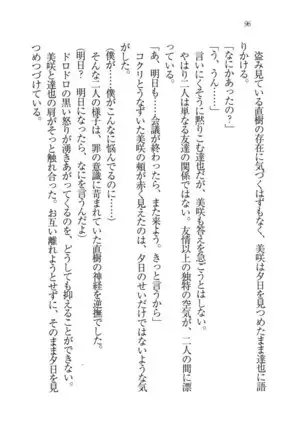 96
盗み見ている直樹の存在に気づくはずもなく、美咲は夕日を見つめたまま達也に語
りかける。
「なにかあったの？」
「う、うん……」
言いにくそうに黙りこむ達也だが、美咲も答えを急ごうとはしない。
やはり二人は単なる友達の関係ではない。友情以上の独特の空気が、二人の間に漂
っている。
「あ、明日も……会議が終わったら、また来よう。きっと言うから」
コクリとうなずいた美咲の頬が赤く見えたのは、夕日のせいだけではないような気
がした。
(僕が……僕がこんなに悩んでるのに……)
(明日？　明日になったら、なにを言うんだよ)
そんな二人の様子は、罪の意識に苛まれていた直樹の神経を逆撫でした。
ドロドロの黒い怒りが湧きあがってくるのを、どうしても抑えることができない。
美咲と達也の肩がそっと触れ合った。お互い離れようとせずに、そのまま夕日を見
つめつづけている。